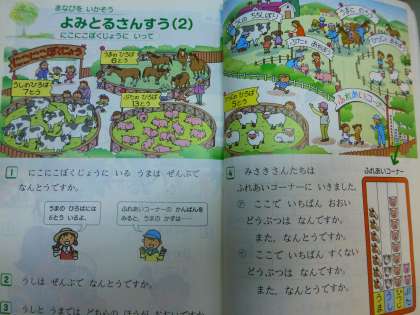 まなびを いかそう
よみとるさんすう(2)
にこにこぼくじょうに いって
にこにこぼくじょう
うまの ひろば
6とう
うしのひろば
7とう
ぶたの ひろば
13とう
1 にこにこぼくじょうに いる うまは ぜんぶで
なんとうですか。
うまの ひろばには
6とう いるよ。
ふれあいコーナーの かんばんを
みると、うまの かずは……
2 うしは ぜんぶで なんとうですか。
3 うしと うまでは どちらの ほうが おおいですか。
ひろば
5とう
ふれあいコーナー
4 みさきさんたちは
ふれあいコーナーに いきました。
ア ここで いちばん おおい
どうぶつは なんですか。
また、なんとうですか。
イ ここで いちばん すくない
どうぶつは なんですか。
また、なんとうですか。
ふれあいコーナー
うま
うし
ぶた